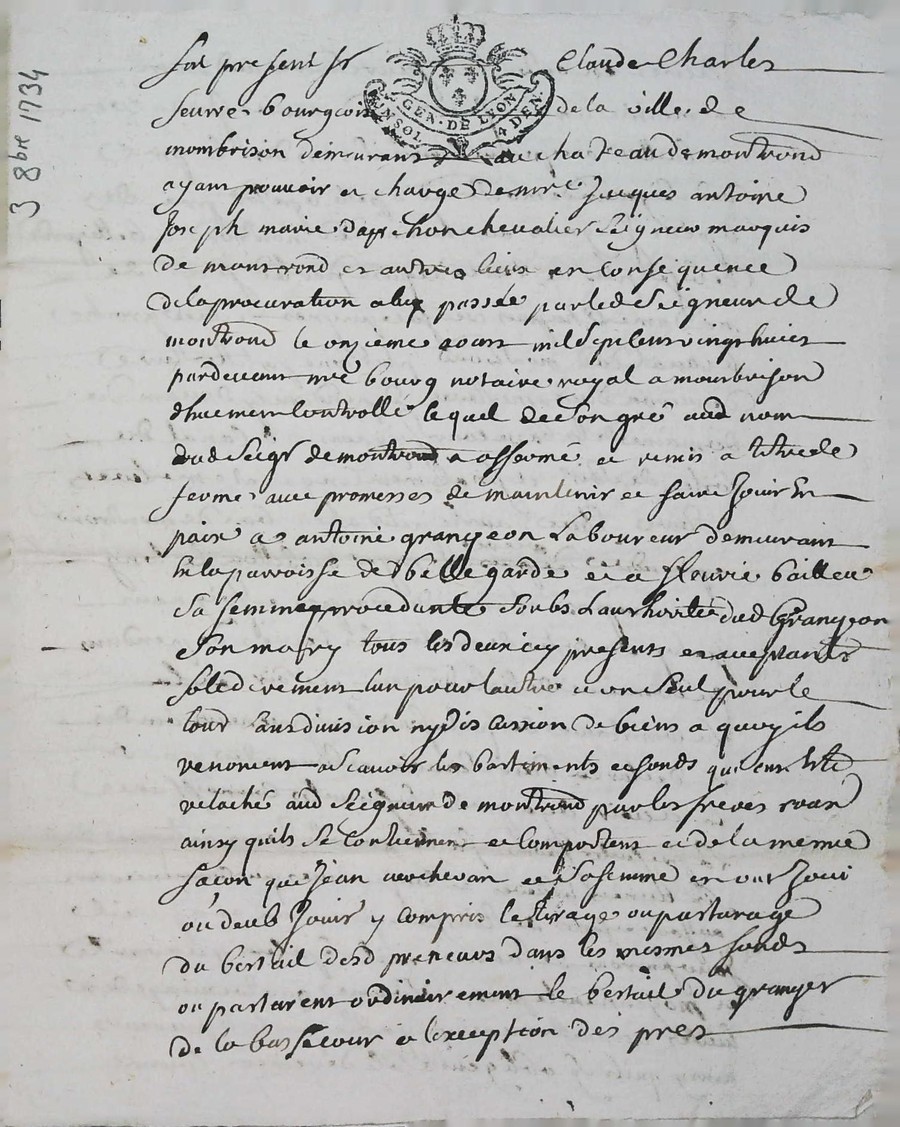 3 8bre 1734
GEN. DE LYON
EN SOL 4 DEN.
fut present sr Claude Charles
seurre bourgois de la ville de
mombrison demeurant au chateau de montrond
ayant pouvoir et charge de mre Jacques antoine
Joseph marie dapchon chevalier seigneur marquis
de montrond et autres lieux en consequence
de la procuration a luy passée par led Seigneur de
montrond le onzieme aoust mil sept cent vingt huict
pardevant mre bourg notaire royal a mombrison
dhuement controllé lequel de son gré aud nom
dud Seigr de montrond a affermé et remis a titre de
ferme avec promesses de maintenir et faire Jouir En
paix a antoine granjeon Laboureur demeurant
En la parroisse de bellegarde et a fleurie bailleu
Sa femme procedante soubs Lauthorité dud Granjeon
Son mary tous les deux icy presents et acceptants
solidairement lun pour lautre et un seul pour le
tout sans division ny discussion de biens a quoy ils
renoncent a scavoir les bastiments et fonds qui ont été
relaché aud Seigneur de montrond par les freres
ainsy quils se contiennent et comportent et de la meme
facon que Jean et sa femme en ont Joui
ou deub Jouir y compris le tirage ou pasturage
du bertail desd preneurs dans les mesmes fonds
ou pasturent ordinairement le bertail du granger
de la basse cour a lexception des pres